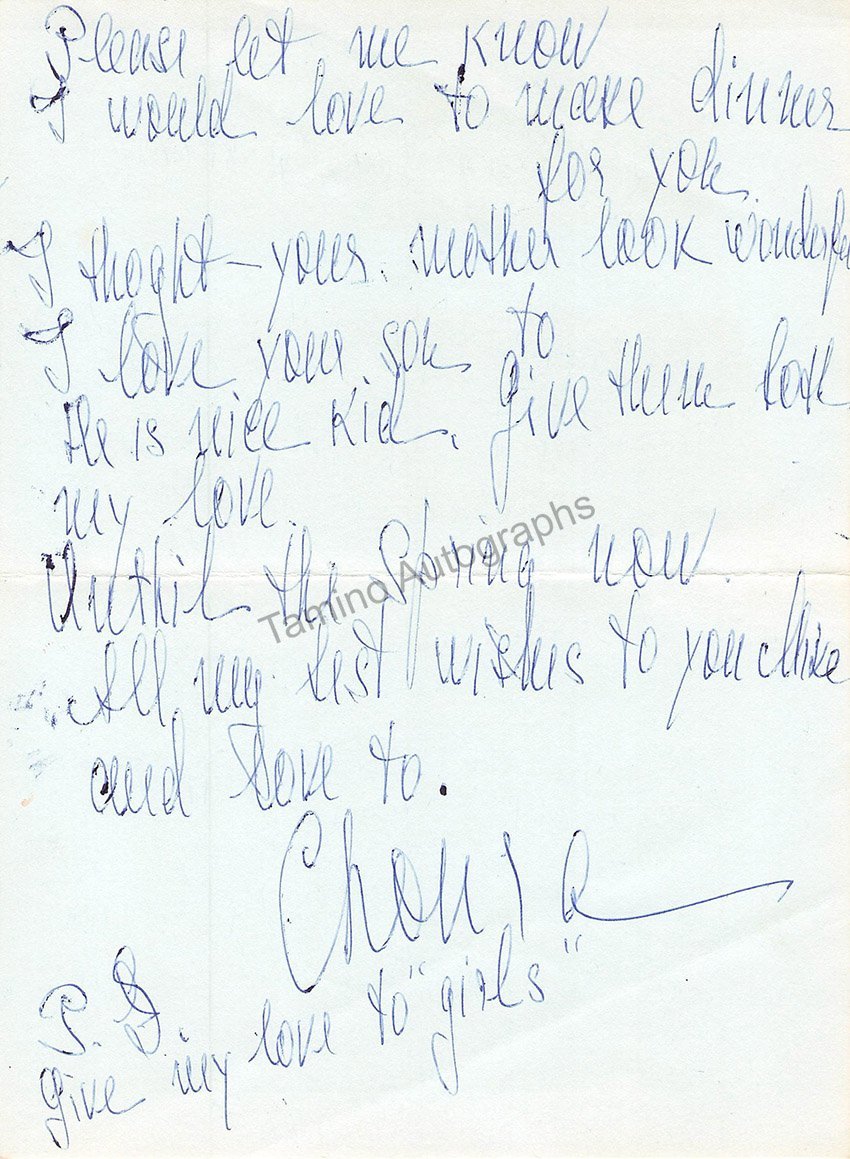 Please let me know
I would love to make dinner
for you.
I thoght - your mother look wonderful
I love your son to.
He is nice kid, give them both
my love.
Unthil the Spring now.
All my best wishes to you Mike
and love to.
P. S.
give my love to "girls"
Tamino Autographs